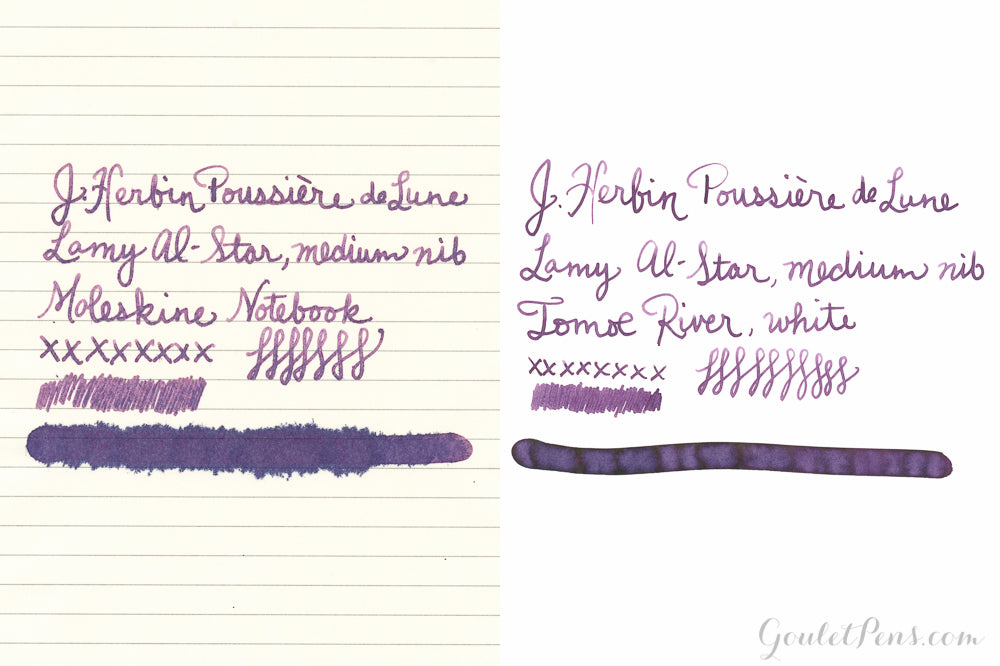 J. Herbin Poussière de Lune
Lamy Al-Star, medium nib
Moleskine Notebook
xx xxxxxx
J. Herbin Poussière de Lune
Lamy Al-Star, medium nib
Tomoe River, white
xxxxxxxx
GouletPens.com